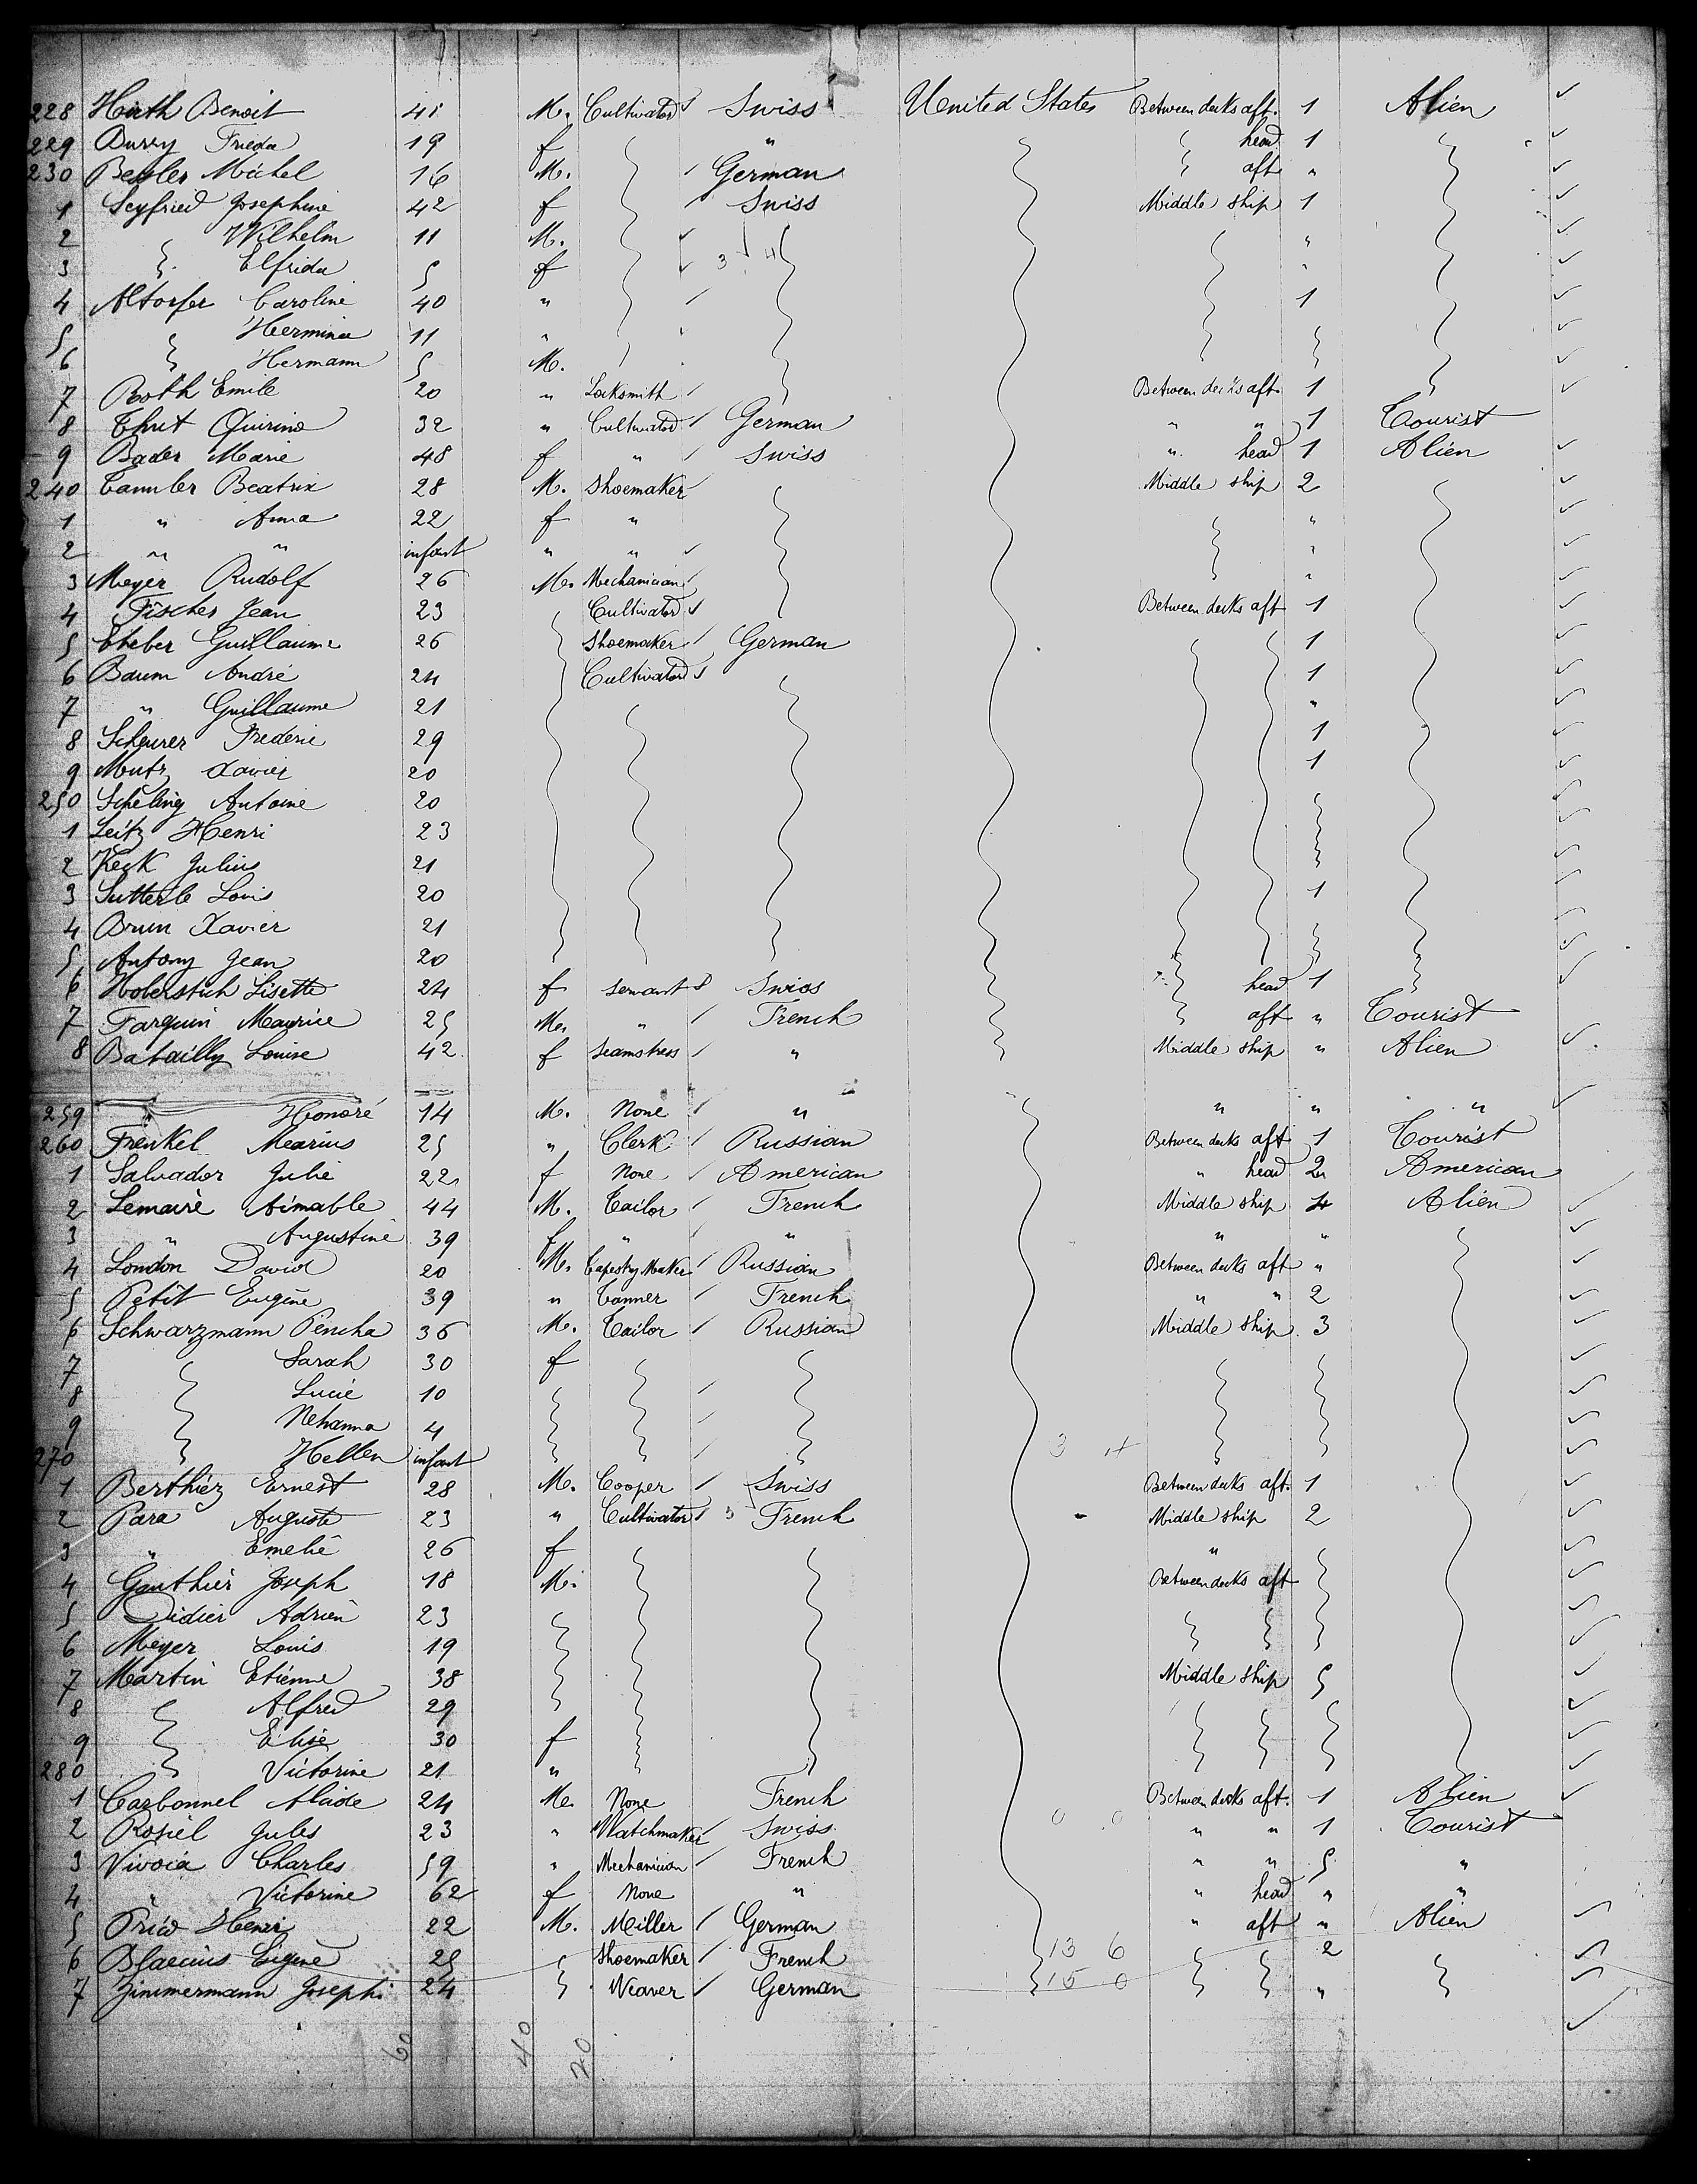 228 Hirth Benoit 41 M. Cultivator Swiss United States Between decks aft. 1 Alien
229 Burey Frieda 19 f " head 1
230 Beyler Michel 16 M. German aft "
1 Seyfried Josephine 42 f Swiss Middle ship 1
2 Wilhelm 11 M. "
3 Elfrida 5 f "
4 Altorfer Caroline 40 " 1
5 Hermine 11 "
6 Hermann 5 M.
7 Roth Emile 20 " Locksmith Between decks aft 1
8 Thut Quirino 32 " Cultivator German " " 1 Tourist
9 Bader Marie 48 f " Swiss " head 1 Alien
240 Tannler Beatrix 28 M. Shoemaker Middle ship 2
1 " Anna 22 f " "
2 " " infant " " "
3 Meyer Rudolf 26 M. Mechanician "
4 Fischer Jean 23 Cultivator Between decks aft 1
5 Eheber Guillaume 26 Shoemaker German 1
6 Baum André 24 Cultivator 1
7 " Guillaume 21 "
8 Scheurer Frederic 29 1
9 Mutz Xavier 20 1
250 Scheling Antoine 20
1 Leitz Henri 23
2 Keck Julius 21
3 Sutterle Louis 20 1
4 Brun Xavier 21
5 Antony Jean 20
6 Holerstich Lisette 24 f Servant Swiss head 1
7 Farquin Maurice 25 M. " French aft " Tourist
8 Batailly Louise 42 f Seamstress " Middle ship " Alien
259 " Honoré 14 M. None " " " "
260 Frenkel Marius 25 " Clerk Russian Between decks aft 1 Tourist
1 Salvador Julie 22 f None American " head 2 American
2 Lemaire Aimable 44 M. Tailor French Middle ship 4 Alien
3 " Augustine 39 f " " " "
4 London David 20 M. Tapestry Maker Russian Between decks aft "
5 Petit Eugène 39 " Tanner French " " 2
6 Schwarzmann Pencha 36 M. Tailor Russian Middle ship 3
7 Sarah 30 f
8 Lucie 10
9 Nehanna 4
270 Hellen infant 3
1 Berthiez Ernest 28 M. Cooper Swiss Between decks aft. 1
2 Para Auguste 23 " Cultivator French Middle ship 2
3 " Emelie 26 f "
4 Gauthier Joseph 18 M. Between decks aft
5 Didier Adrien 23
6 Meyer Louis 19
7 Martin Etienne 38 Middle ship 5
8 Alfred 29
9 Elise 30 f
280 Victorine 21 "
1 Carbonnel Alcide 24 M. None French Between decks aft. 1 Alien
2 Rosiel Jules 23 " Watchmaker Swiss 0 0 " " 1 Tourist
3 Vivoia Charles 59 " Mechanician French " " 5 "
4 " Victorine 62 f None " " head " "
5 Fried Henri 22 M. Miller German " aft " Alien
6 Blaecius Eugene 25 Shoemaker French 13 6 2
7 Zimmermann Joseph 24 Weaver German 15 0 "
60 40 20